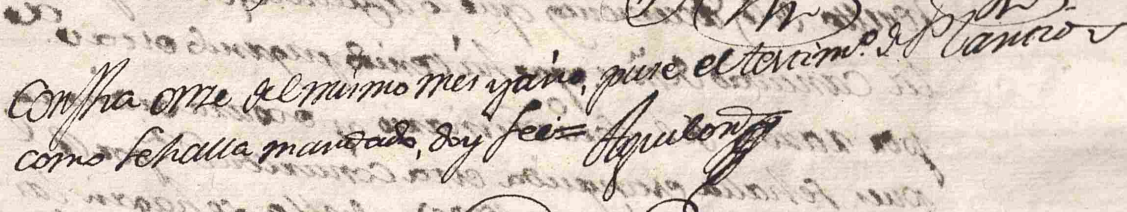 Con fha onze del mismo mes y año, puse el testim.º de Plancio
como se halla mandado, doy fee = Aquilon